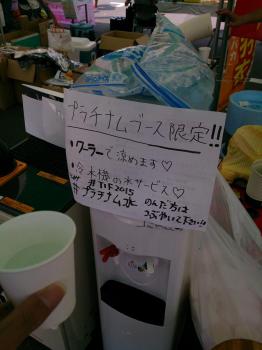 プラチナムブース限定!!
・クーラーで涼めます♡
・冷水機の水サービス♡
#TIF2015
#プラチナム水
のんだ方は
つぶやいて下さい!!